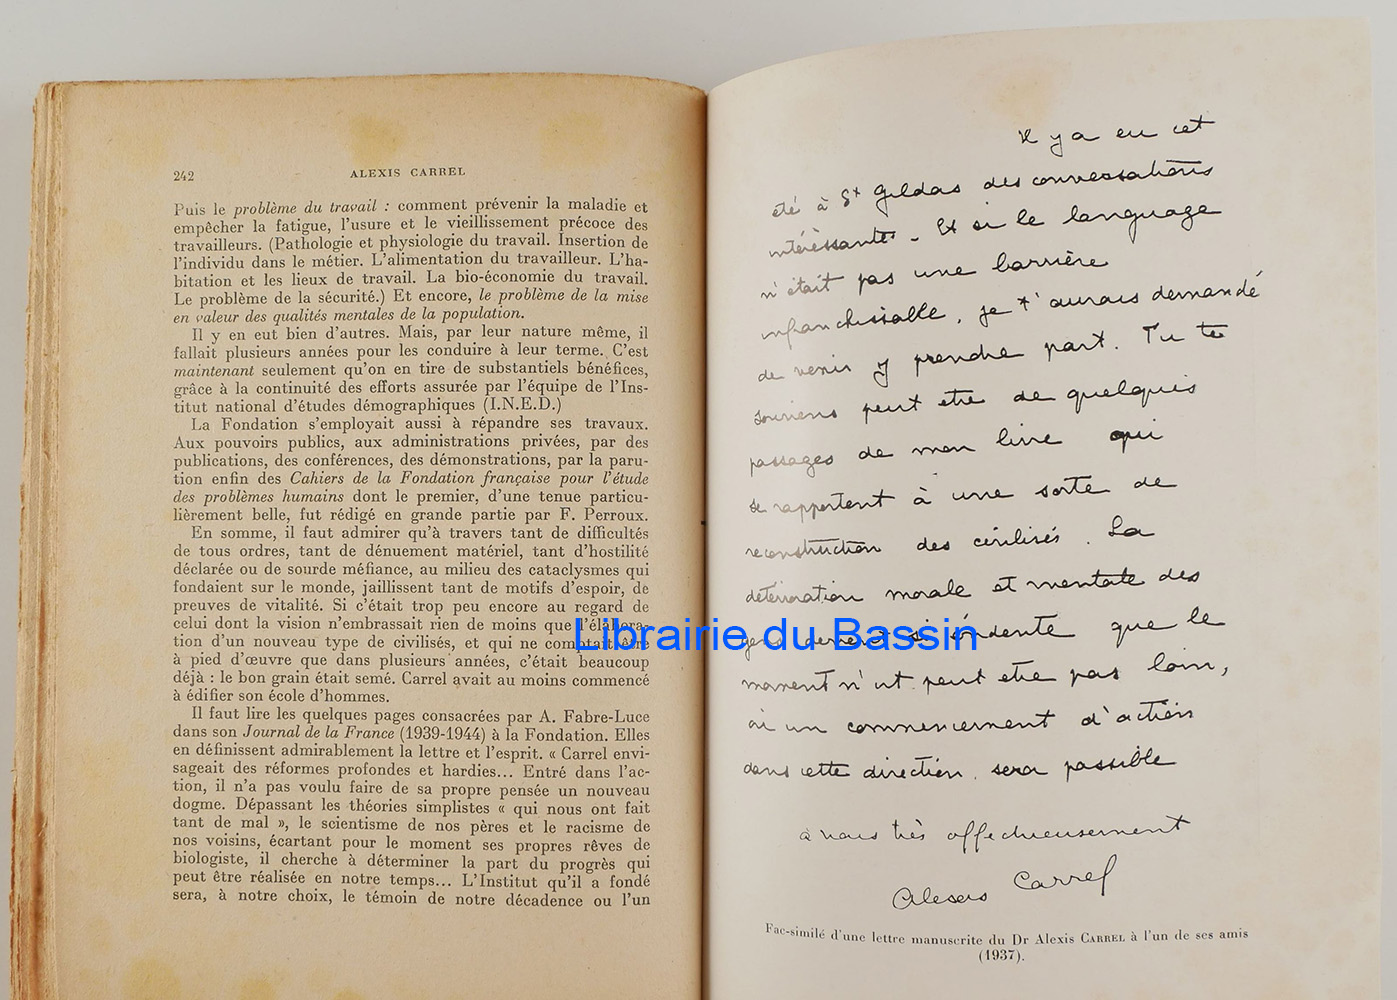 242 ALEXIS CARREL
Puis le problème du travail : comment prévenir la maladie et
empêcher la fatigue, l'usure et le vieillissement précoce des
travailleurs. (Pathologie et physiologie du travail. Insertion de
l'individu dans le métier. L'alimentation du travailleur. L'ha-
bitation et les lieux de travail. La bio-économie du travail.
Le problème de la sécurité.) Et encore, le problème de la mise
en valeur des qualités mentales de la population.
Il y en eut bien d'autres. Mais, par leur nature même, il
fallait plusieurs années pour les conduire à leur terme. C'est
maintenant seulement qu'on en tire de substantiels bénéfices,
grâce à la continuité des efforts assurée par l'équipe de l'Ins-
titut national d'études démographiques (I.N.E.D.)
La Fondation s'employait aussi à répandre ses travaux.
Aux pouvoirs publics, aux administrations privées, par des
publications, des conférences, des démonstrations, par la paru-
tion enfin des Cahiers de la Fondation française pour l'étude
des problèmes humains dont le premier, d'une tenue particu-
lièrement belle, fut rédigé en grande partie par F. Perroux.
En somme, il faut admirer qu'à travers tant de difficultés
de tous ordres, tant de dénuement matériel, tant d'hostilité
déclarée ou de sourde méfiance, au milieu des cataclysmes qui
fondaient sur le monde, jaillissent tant de motifs d'espoir, de
preuves de vitalité. Si c'était trop peu encore au regard de
celui dont la vision n'embrassait rien de moins que l'élabora-
tion d'un nouveau type de civilisés, et qui ne comptait être
à pied d'œuvre que dans plusieurs années, c'était beaucoup
déjà : le bon grain était semé. Carrel avait au moins commencé
à édifier son école d'hommes.
Il faut lire les quelques pages consacrées par A. Fabre-Luce
dans son Journal de la France (1939-1944) à la Fondation. Elles
en définissent admirablement la lettre et l'esprit. « Carrel envi-
sageait des réformes profondes et hardies... Entré dans l'ac-
tion, il n'a pas voulu faire de sa propre pensée un nouveau
dogme. Dépassant les théories simplistes « qui nous ont fait
tant de mal », le scientisme de nos pères et le racisme de
nos voisins, écartant pour le moment ses propres rêves de
biologiste, il cherche à déterminer la part du progrès qui
peut être réalisée en notre temps... L'Institut qu'il a fondé
sera, à notre choix, le témoin de notre décadence ou l'un
Il y a eu cet
été à St Gildas des conversations
intéressantes. Et si le language
n'était pas une barrière
infranchissable, je t'aurais demandé
de venir y prendre part. Tu te
souviens peut etre de quelques
passages de mon livre qui
se rapportent à une sorte de
reconstruction des civilisés. La
détérioration morale et mentale des
gens devient si évidente que le
moment n'est peut etre pas loin,
où un commencement d'action
dans cette direction sera possible
à vous très affectueusement
Alexis Carrel
Fac-similé d'une lettre manuscrite du Dr Alexis CARREL à l'un de ses amis
(1937).
Librairie du Bassin